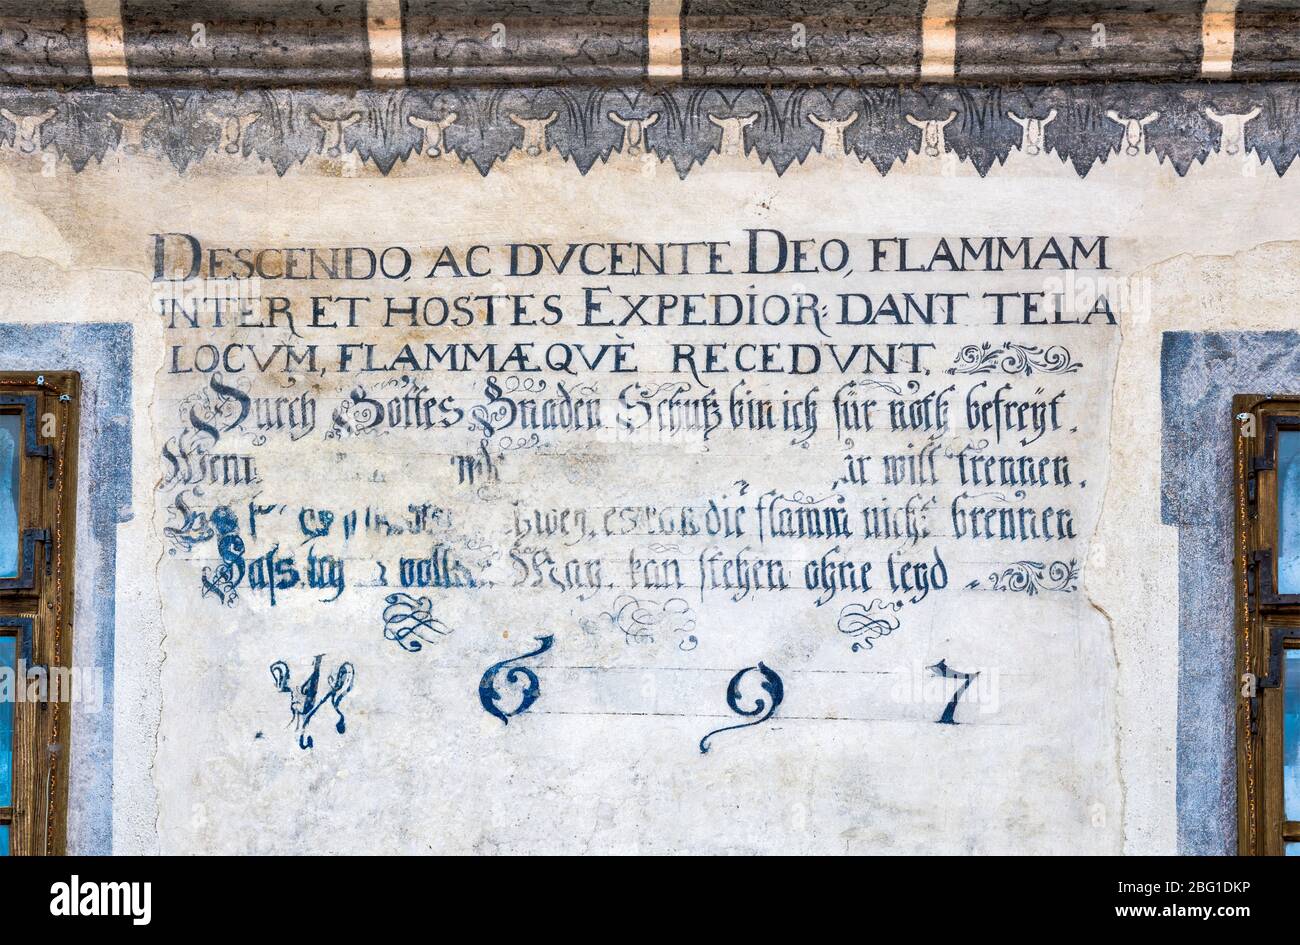 DESCENDO, AC DVCENTE DEO, FLAMMAM
INTER ET HOSTES EXPEDIOR: DANT TELA
LOCVM, FLAMMÆQVÈ RECEDVNT.
Durch Gottes Gnaden Schutz bin ich für noth befreyt.
will trennen.
die flamm nicht brennen
May. kan stehen ohne leyd
1697
alamy
Image ID: DBG1DKP
www.alamy.com